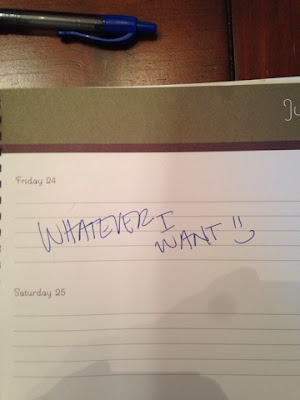 Ju
Friday 24
WHATEVER I
WANT
Saturday 25